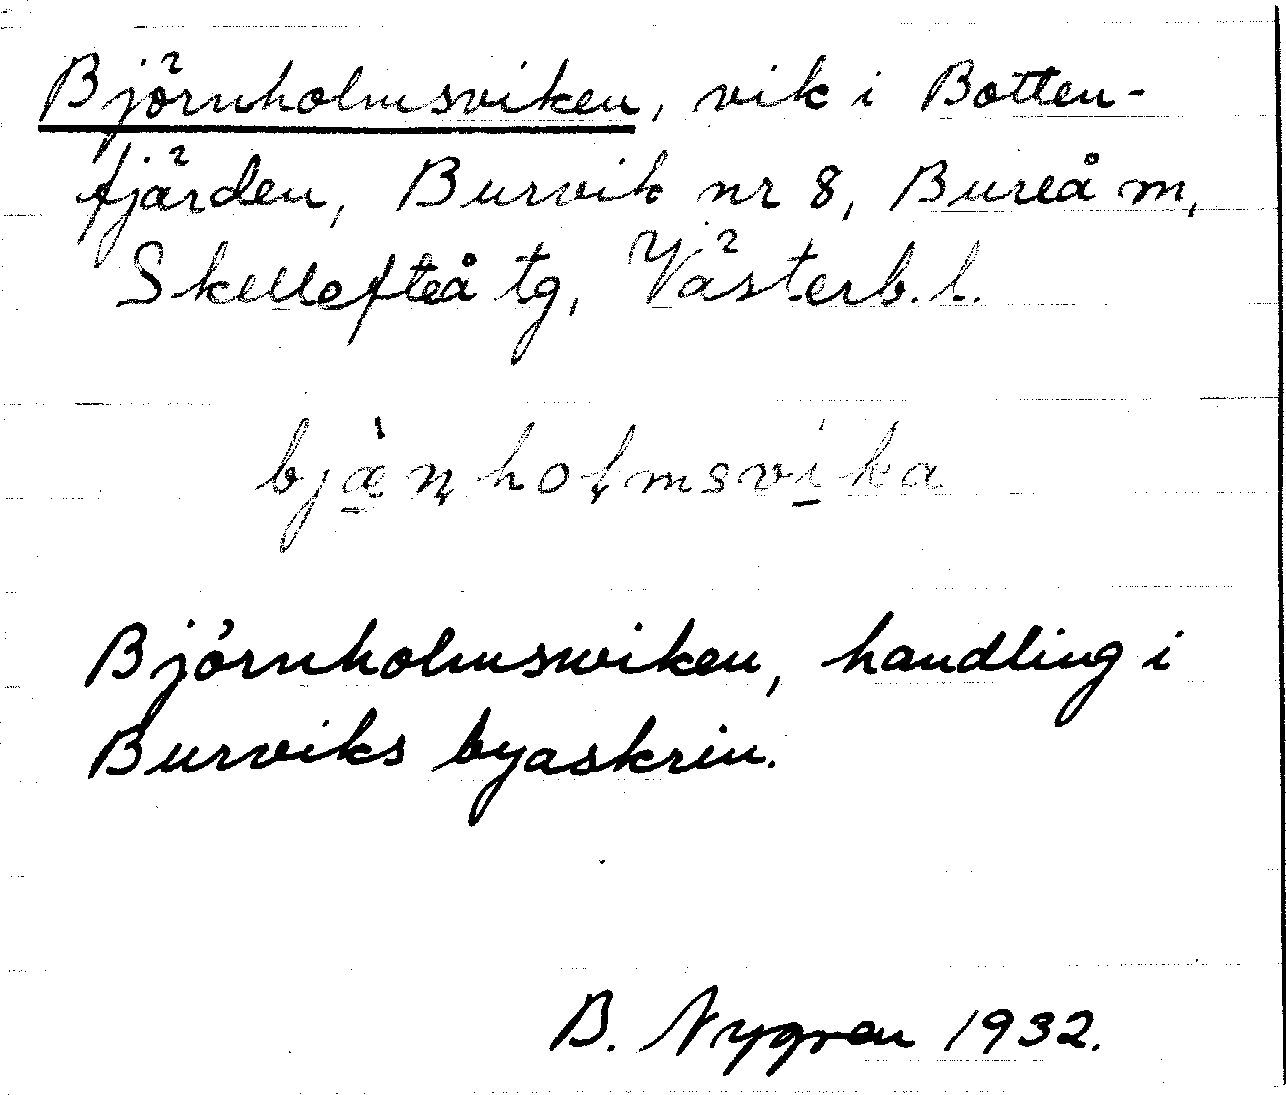 Björnholmsviken, vik i Botten-
fjärden, Burvik nr 8, Bureå m,
Skellefteå tg, Västerb. l.
bjæ̠̀ɳhoɭmsvi̠̍ka
Björnholmswiken, handling i
Burviks byaskrin.
B. Nygren 1932.